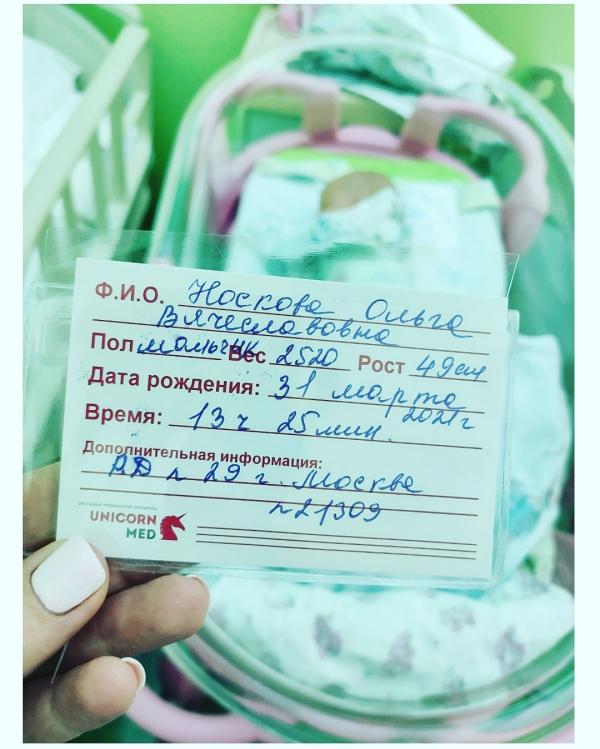 Ф.И.О. Носкова Ольга
Вячеславовна
Пол мальчик Вес 2520 Рост 49см
Дата рождения: 31 марта
2021г
Время: 13ч 25мин.
Дополнительная информация:
РД № 29 г. Москва
№21309
UNICORN
MED